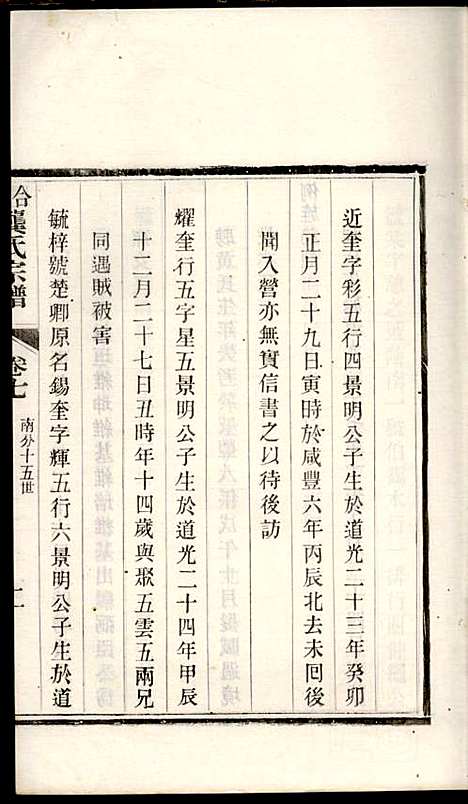 近奎字彩五行四景明公子生於道光二十三年癸卯
正月二十九日寅時於咸豐六年丙辰北去未回後
聞入營亦無實信書之以待後訪
耀奎行五字星五景明公子生於道光二十四年甲辰
十二月二十七日丑時年十四歲與聚五雲五兩兄
同遇賊被害
毓梓號楚卿原名錫奎字輝五行六景明公子生於道
合龔氏宗譜
卷七
南分十五世